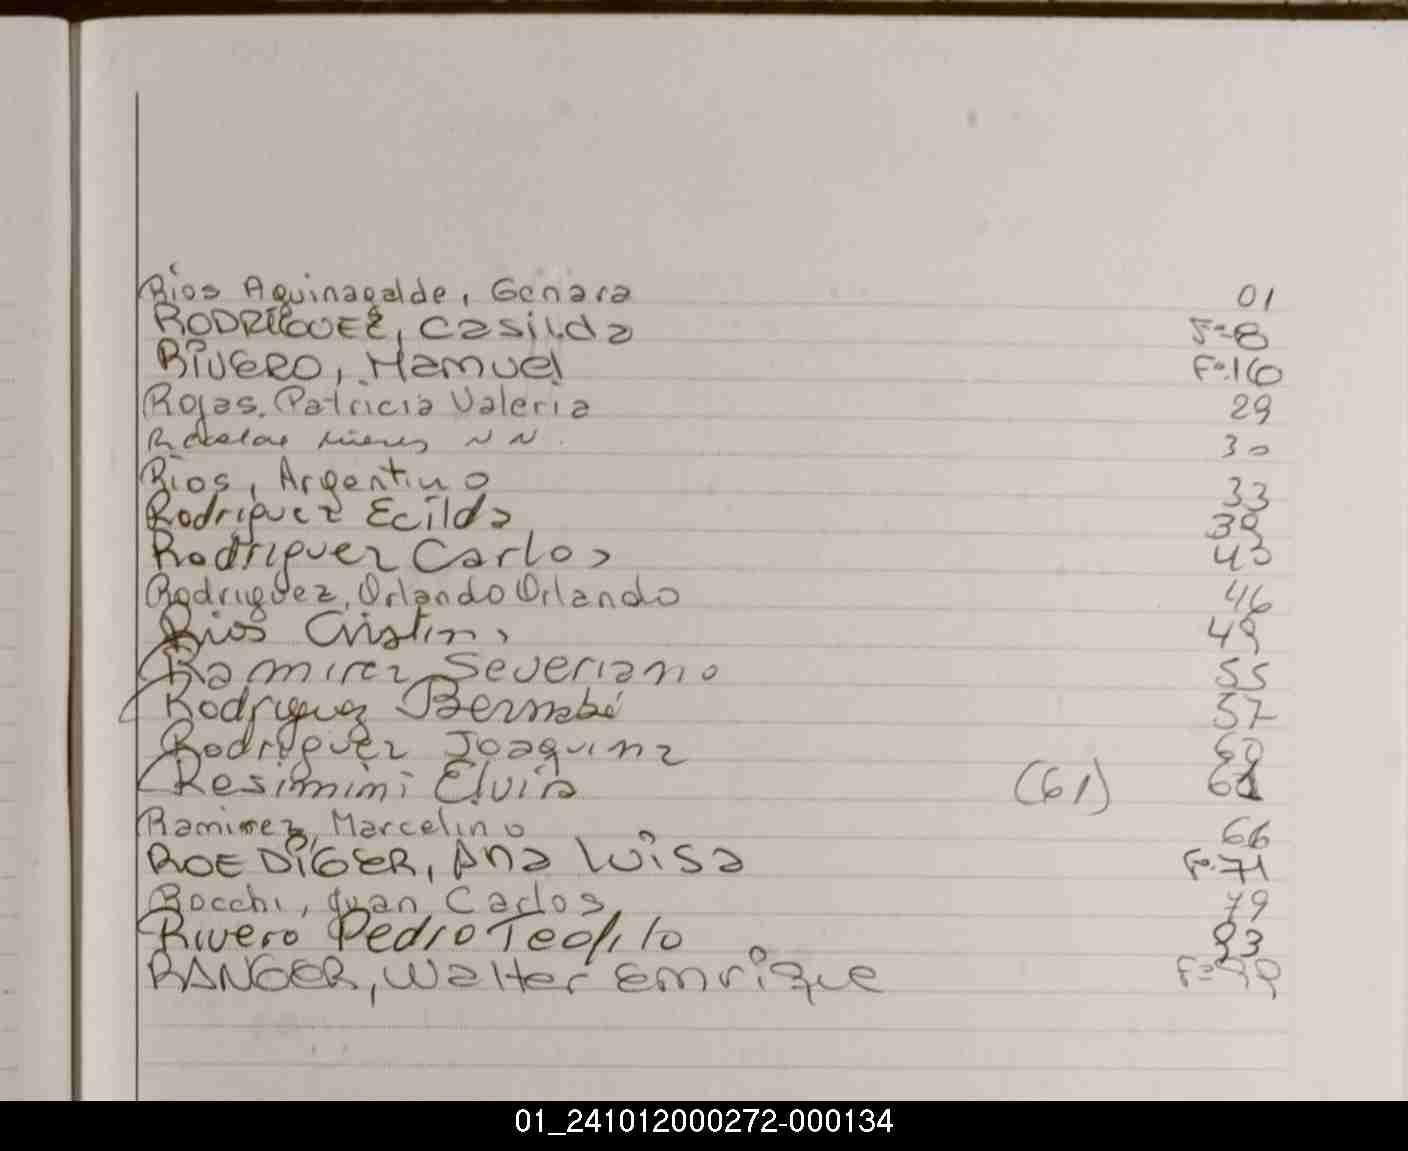 Ríos Aguinagalde, Genara 01
RODRIGUEZ, Casilda Fº 8
RIVERO, Manuel Fº 16
Rojas, Patricia Valeria 29
N N 30
Ríos, Argentino 33
Rodriguez Ecilda 39
Rodriguez Carlos 43
Rodriguez, Orlando Orlando 46
Rios Cristina 49
Ramirez Severiano 55
Rodriguez Bernabé 57
Rodriguez Joaquina 60
Resimini Elvira (61)
Ramirez, Marcelino 66
ROEDIGER, Ana Luisa Fº 71
Rocchi, Juan Carlos 79
Rivero Pedro Teofilo 93
RANGER, Walter Enrique Fº 99
01_241012000272-000134